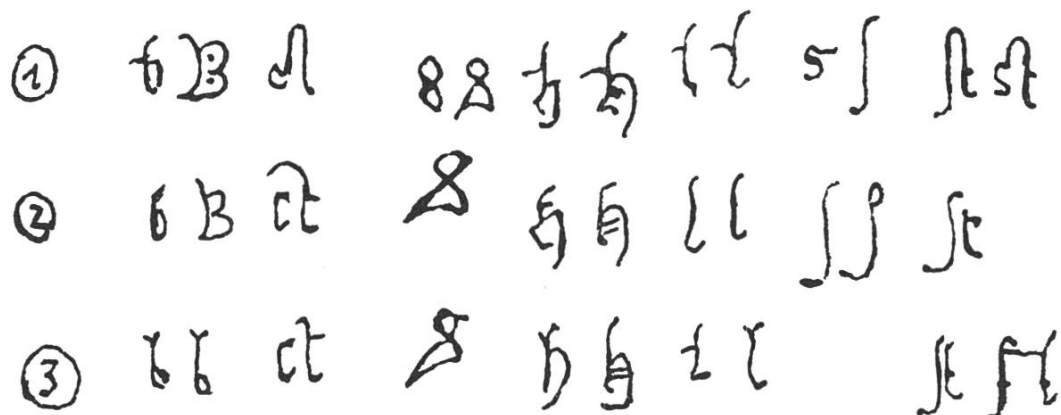 ① b B ct 8 & h h l l s ſ ſt st
② b B ct & h h l l ſ ſ ſt
③ b b ct & h h l l ſt ſt